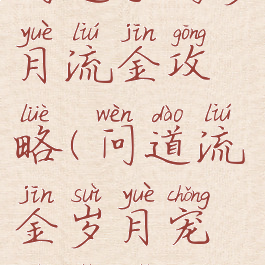 yuè liú jīn gōng
月流金攻
lüè wèn dào liú
略(问道流
jīn suì yuè chǒng
金岁月宠